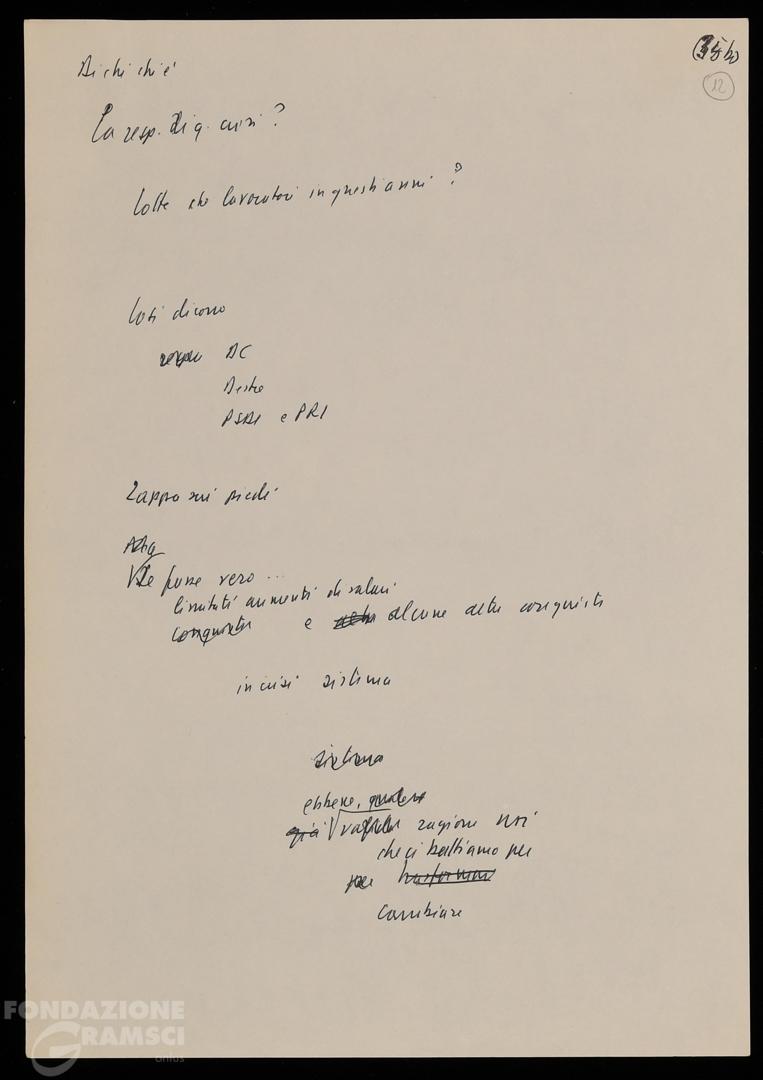 12
Di chi chi è
la resp. di q. crisi?
Lotte dei lavoratori in questi anni?
Così dicono
DC
Destre
PSDI e PRI
Zappa sui piedi
Se fosse vero ...
limitati aumenti di salari
conquiste e altre alcune altre conquiste
in crisi sistema
sistema
ebbene,
già ragione noi
che ci battiamo per
per trasformare
cambiare
FONDAZIONE
GRAMSCI
onlus